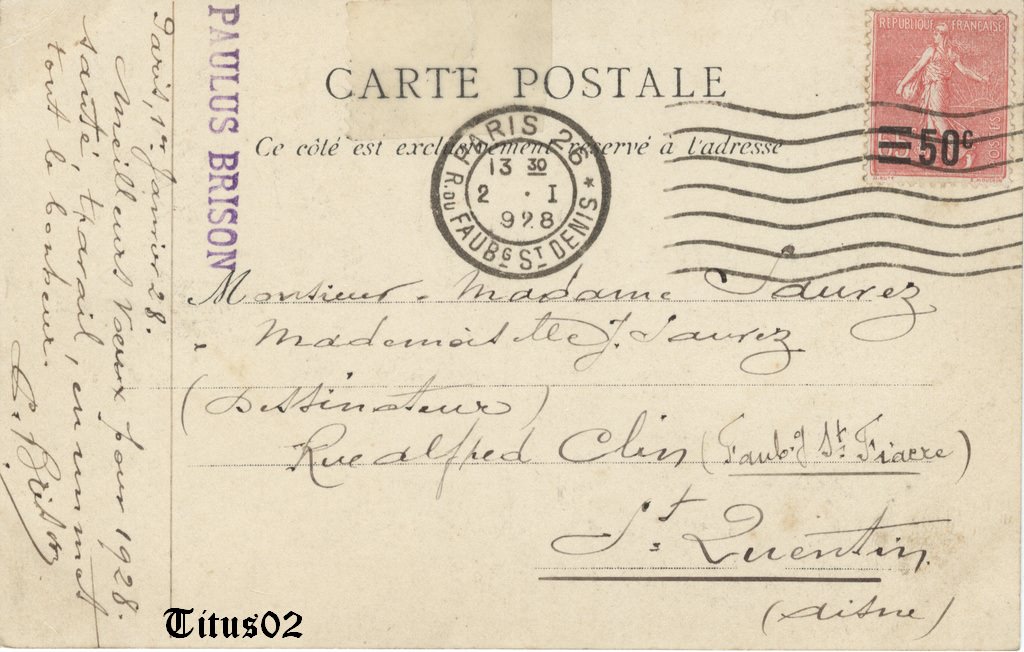 CARTE POSTALE
Ce côté est exclusivement réservé à l'adresse
REPUBLIQUE FRANÇAISE
POSTES
50c
PARIS 26
13 30
2 · I
928
R. DU FAUBG ST DENIS *
PAULUS BRISON
Paris, 1er Janvier 28.
Meilleurs Voeux pour 1928.
santé, travail, en un mot
tout le bonheur.
P. Brison
Monsieur. Madame Saurez
" Mademoiselle J. Saurez
(Dessinateur)
Rue Alfred Clin (Faubg St Fiacre)
St. Quentin
(Aisne)
Titus02